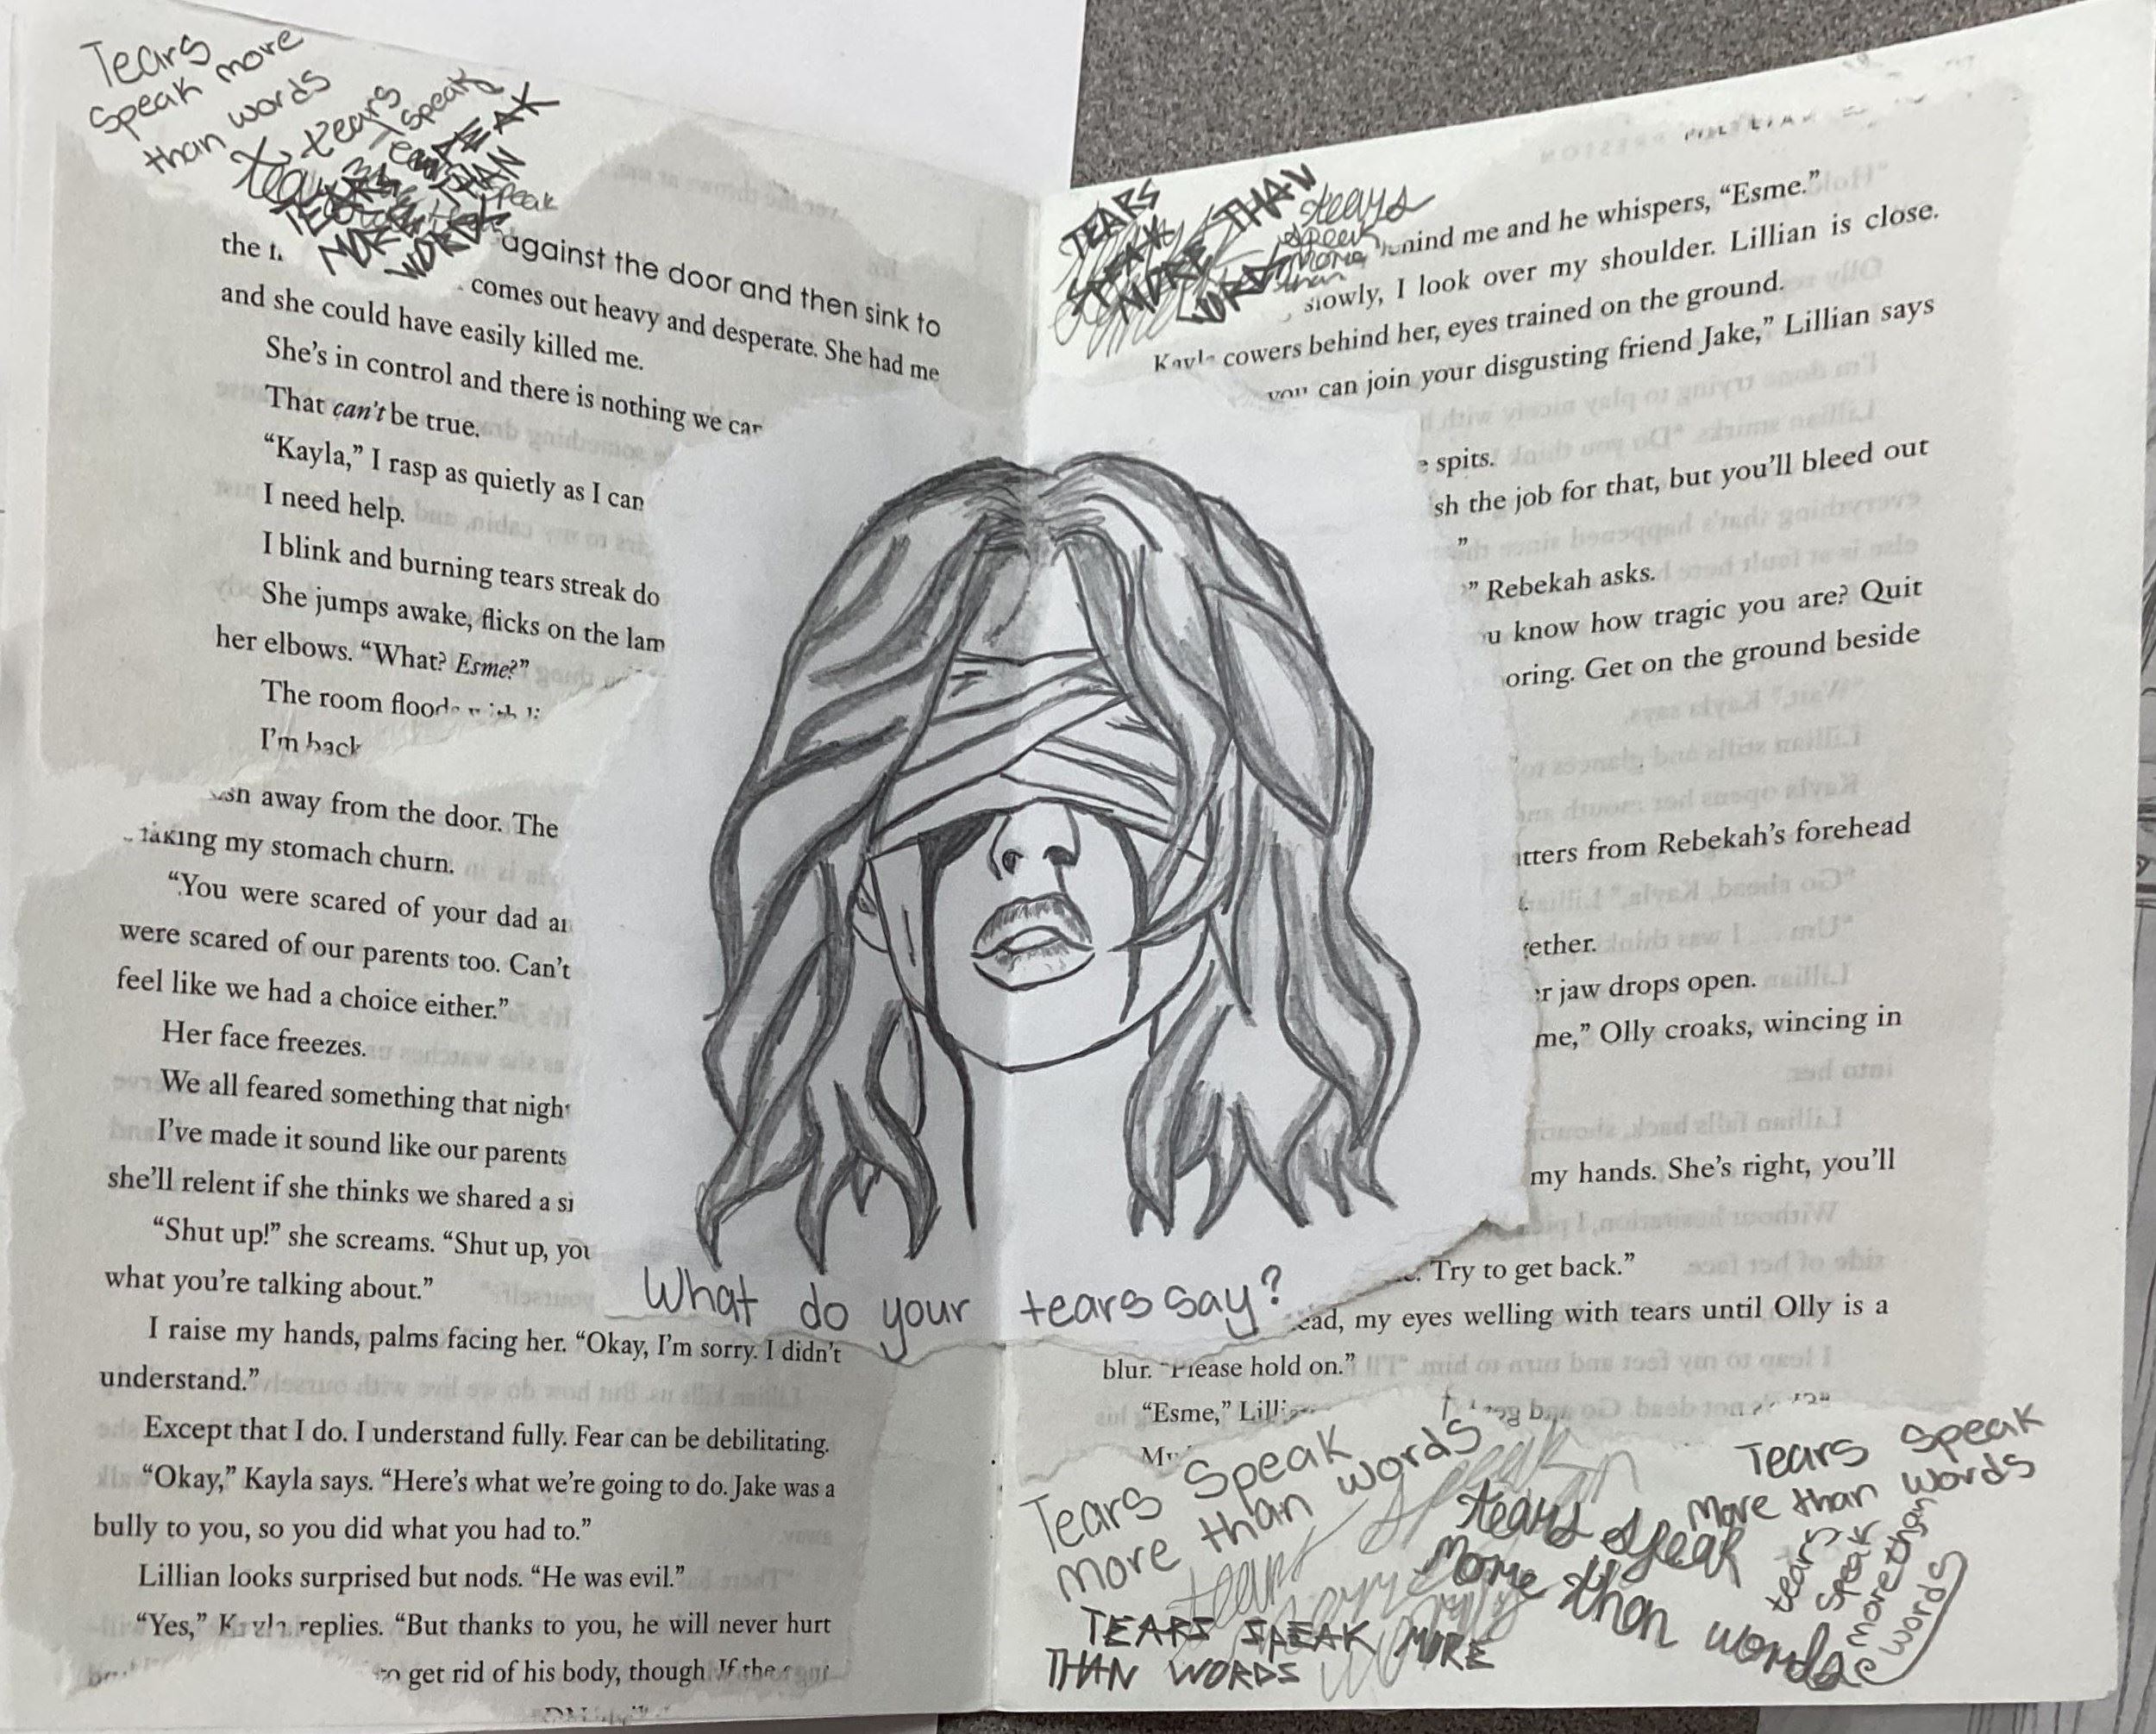 Tears
Speak more
than words
tears
speak
TEARS
SPEAK
MORE THAN
WORDS
against the door and then sink to
the
comes out heavy and desperate. She had me
and she could have easily killed me.
She's in control and there is nothing we
That can't be true.
"Kayla," I rasp as quietly as I can
I need help.
I blink and burning tears streak do
She jumps awake, flicks on the lam
her elbows. "What? Esme?"
The room
I'm back
away from the door. The
taking my stomach churn.
"You were scared of your dad
were scared of our parents too. Can't
feel like we had a choice either."
Her face freezes.
We all feared something that nigh
I've made it sound like our parents
she'll relent if she thinks we shared a si
"Shut up!" she screams. "Shut up, you
what you're talking about."
I raise my hands, palms facing her. "Okay, I'm sorry. I didn't
understand."
Except that I do. I understand fully. Fear can be debilitating.
"Okay," Kayla says. "Here's what we're going to do. Jake was a
bully to you, so you did what you had to."
Lillian looks surprised but nods. "He was evil."
"Yes," Kayla replies. "But thanks to you, he will never hurt
get rid of his body, though. If the
What do your tears say?
TEARS
SPEAK
MORE THAN
WORDS
tears
speak
more
than
me and he whispers, "Esme."
slowly, I look over my shoulder. Lillian is close.
Kayla cowers behind her, eyes trained on the ground.
you can join your disgusting friend Jake," Lillian says
e spits.
sh the job for that, but you'll bleed out
"
" Rebekah asks.
u know how tragic you are? Quit
oring. Get on the ground beside
tters from Rebekah's forehead
ether.
r jaw drops open.
me," Olly croaks, wincing in
my hands. She's right, you'll
Try to get back."
ead, my eyes welling with tears until Olly is a
blur. "Please hold on."
"Esme," Lilli
Tears Speak
more than words
Tears Speak
More than words
tears speak
more than words
tears
speak
more than
words
TEARS SPEAK MORE
THAN WORDS